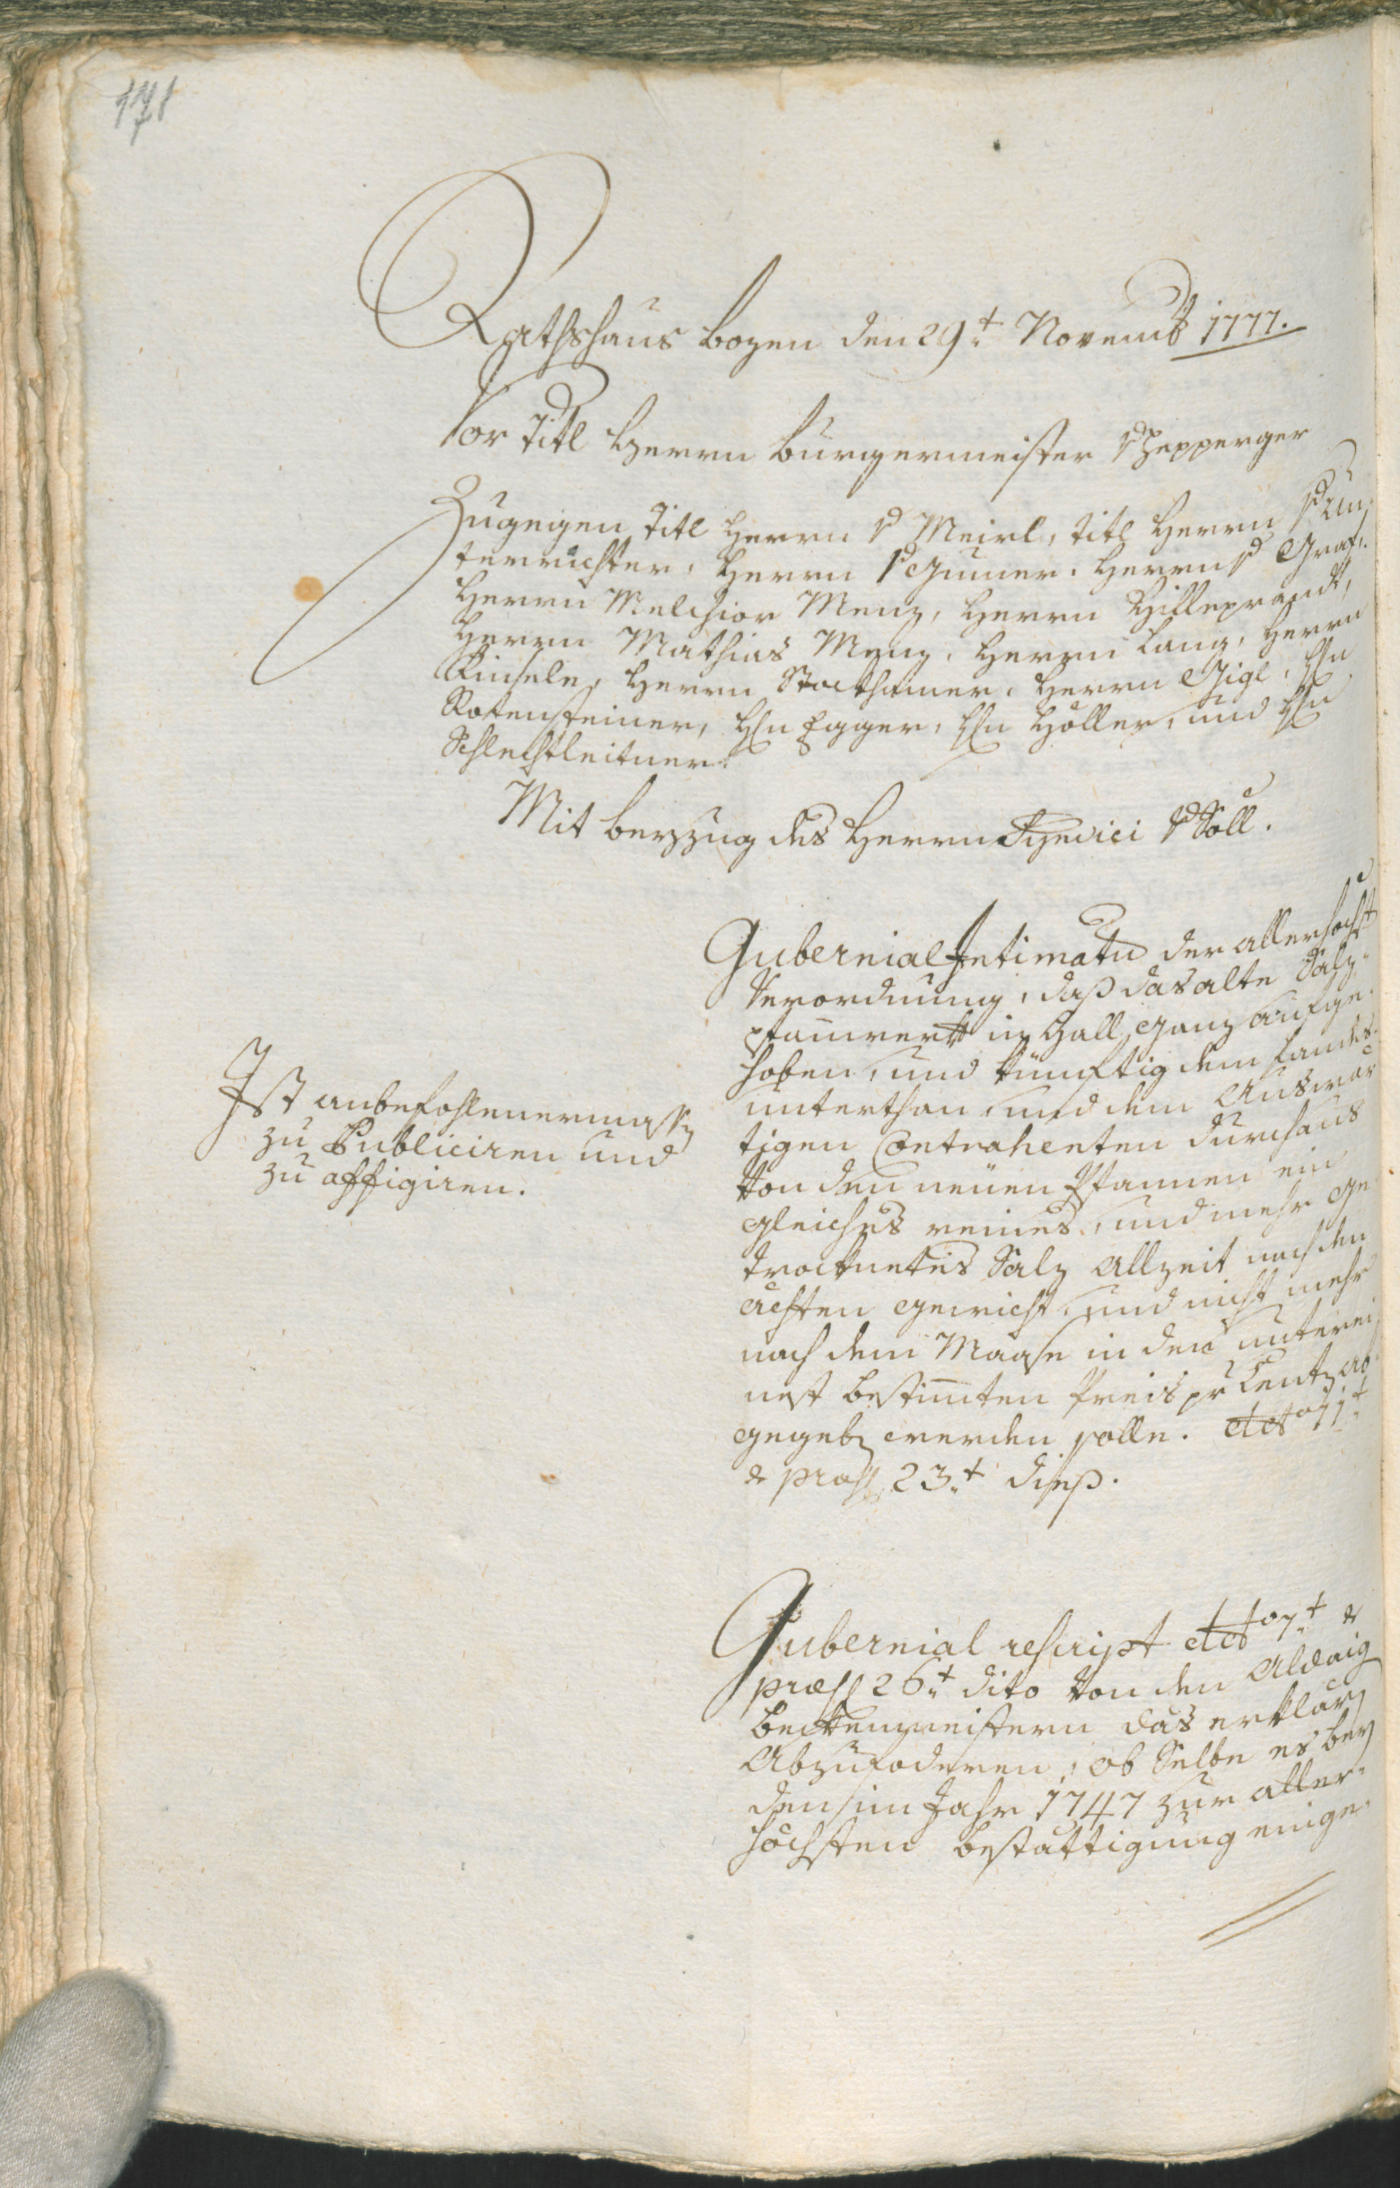 171
Rathshaus Bozen den 29.t Novemb 1777.
Vor Titl Herrn Burgermeister v Zepperger
Zugegen Titl Herrn v Meirl, titl Herrn v Un„
terrichter, Herrn v Gumer, Herrn v Graf,
Herrn Melchior Menz, Herrn Hilleprandt,
Herrn Mathias Menz, Herrn Lang, Herrn
Kinsele, Herrn Stockhamer, Herrn Gigl, Hn
Rotensteiner, Hn Egger, Hn Holler, und Hn
Schlechtleitner.
Mit beyzug des Herrn Syndici v Söll.
Gubernial Intimatū der allerhöchst
Verordnung, daß das alte Salz„
pfannwerk in Hall ganz aufge„
hoben, und künftig dem Landes„
unterthan, und dem Auswär„
tigen Contrahenten durchaus
von den neuen Pfannen ein
gleiches reines, und mehr ge„
trocknetes Salz allzeit nach den
ächten gewicht, und nicht mehr
nach dem Maase in den unterei„
nest bestimten Preis pr Centn ab„
gegebn werden solle. dto 11.t
& præs 23.t dieß.
Ist anbefohlenermassn
zu Publiciren und
zu affigiren.
Gubernial rescript dto 7.t &
præs 26.t dito von den
Beckenmeistern das erklärn
Abzufoderen, ob Selbe es bey
den im Jahr 1747 zur aller„
höchsten bestättigung einge„